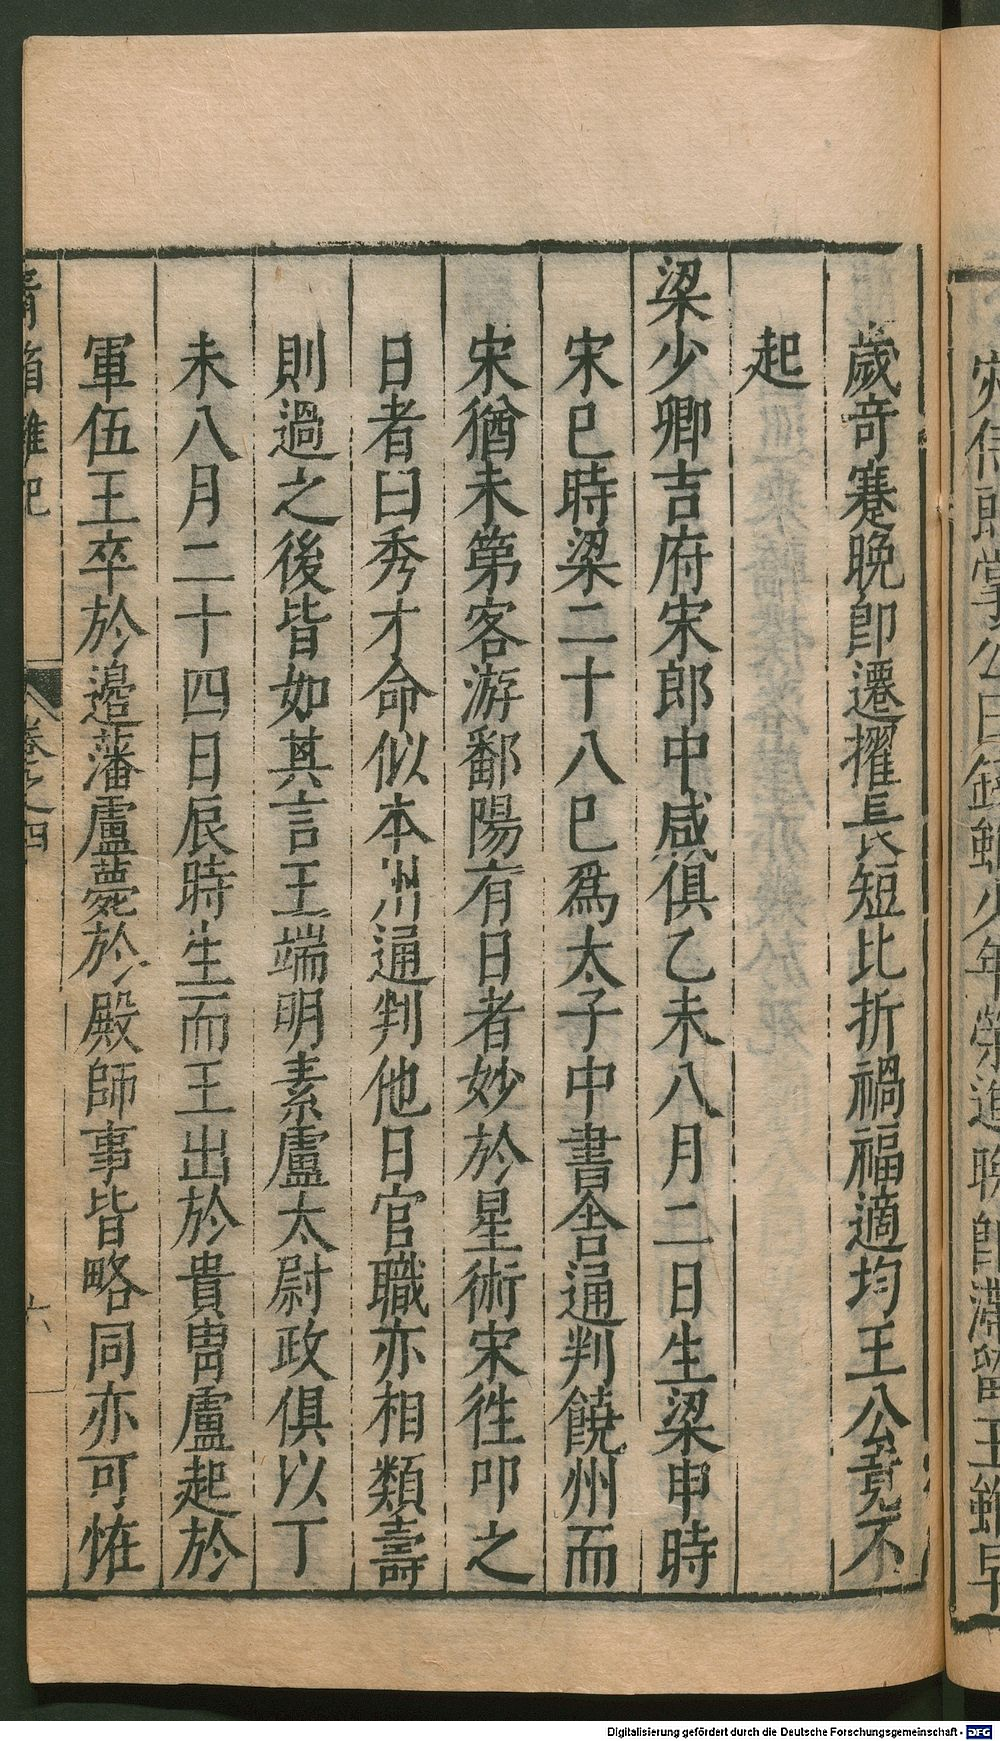 歲奇蹇晚卽遷擢長短比折禍福適均王公竟不
起
梁少卿吉府宋郎中咸俱乙未八月二日生梁申時
宋巳時梁二十八巳爲太子中書舍通判饒州而
宋猶未第客游鄱陽有日者妙於星術宋徃叩之
日者曰秀才命似本州通判他日官職亦相類壽
則過之後皆如其言王端明素盧太尉政俱以丁
未八月二十四日辰時生而王出於貴冑盧起於
軍伍王卒於邉藩盧薨於殿師事皆略同亦可恠
青箱雜記 卷之四 六
Digitalisierung gefördert durch die Deutsche Forschungsgemeinschaft - DFG